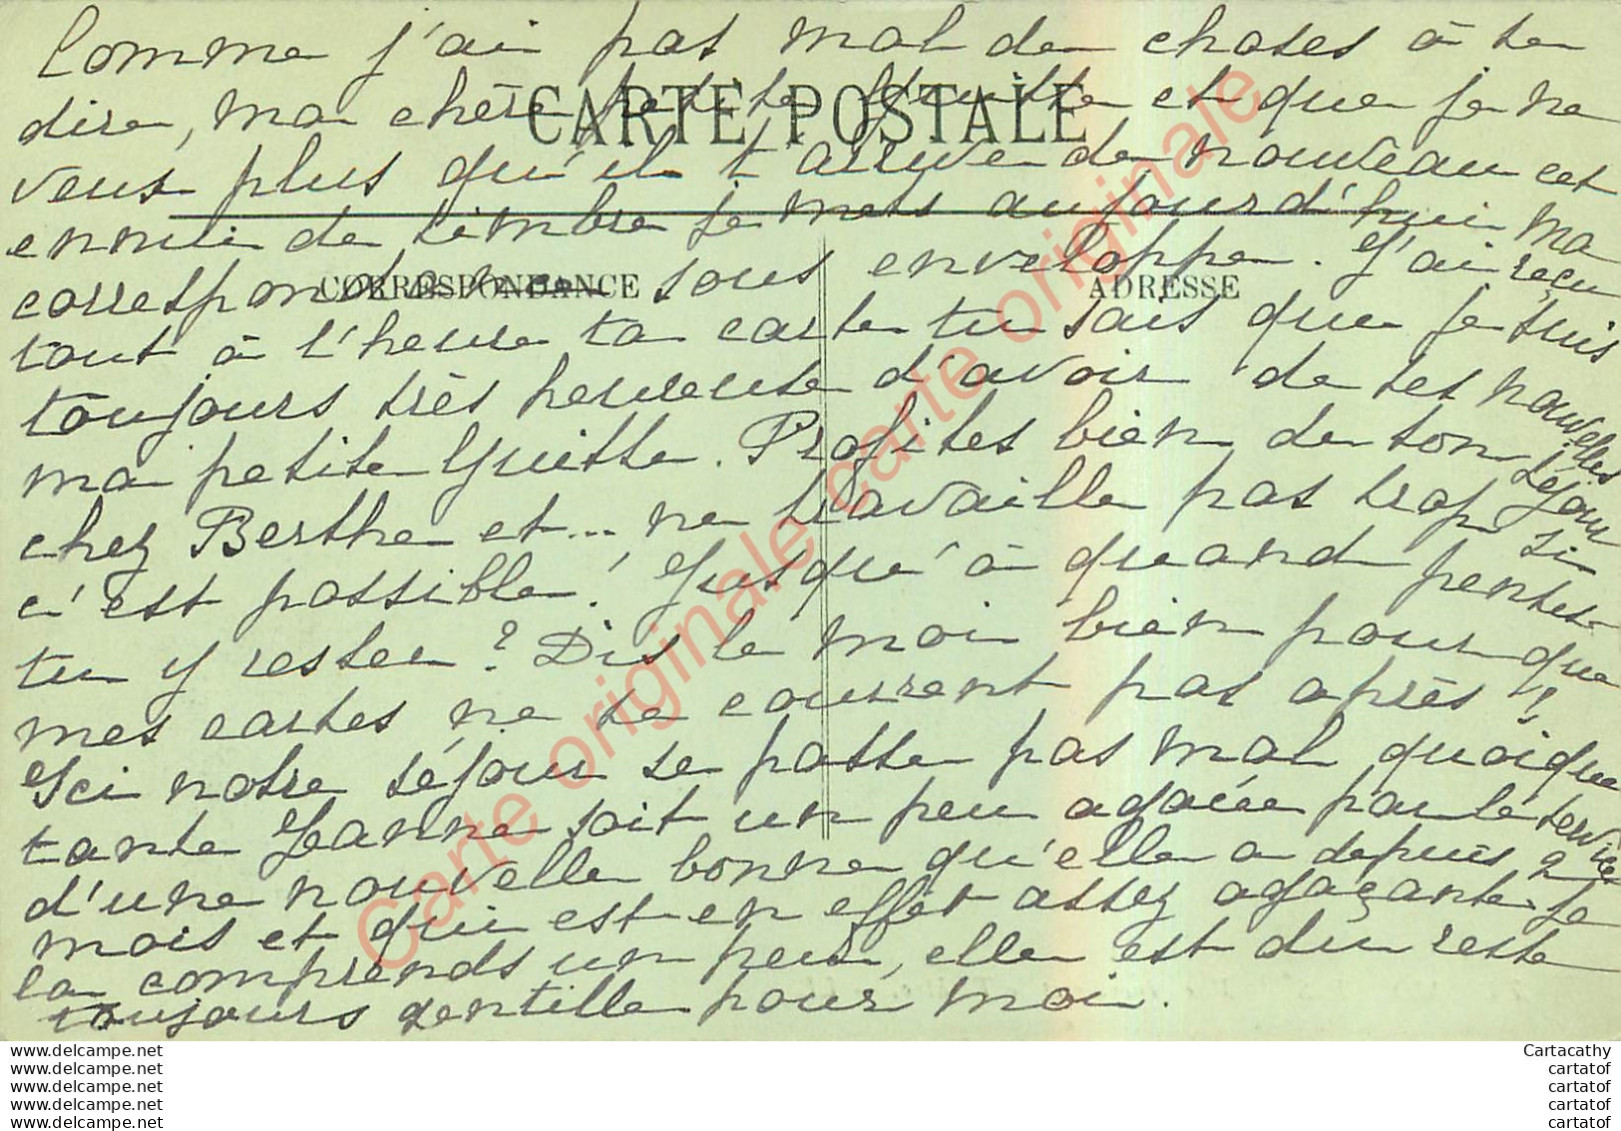 Comme j'ai pas mal de choses à te
dire, ma chère petite Guitte et que je ne
CARTE POSTALE
veux plus qu'il t'arrive de nouveau cet
ennui de timbre je mets aujourd'hui ma
correspondance sous enveloppe. J'ai reçu
CORRESPONDANCE
ADRESSE
tout à l'heure ta carte tu sais que je suis
toujours très heureuse d'avoir de tes nouvelles
ma petite Guitte. Profites bien de ton séjour
chez Berthe et... ne travaille pas trop si
c'est possible! Jusqu'à quand penses-
tu y rester? Dis le moi bien pour que
mes cartes ne te courrent pas après!
Ici notre séjour se passe pas mal quoique
tante Jeanne soit un peu agacée par le service
d'une nouvelle bonne qu'elle a depuis 2
mois et qui est en effet assez agaçante. Je
la comprends un peu, elle est du reste
toujours gentille pour moi.
Carte originale carte originale
www.delcampe.net
www.delcampe.net
www.delcampe.net
www.delcampe.net
www.delcampe.net
Cartacathy
cartatof
cartatof
cartatof
cartatof